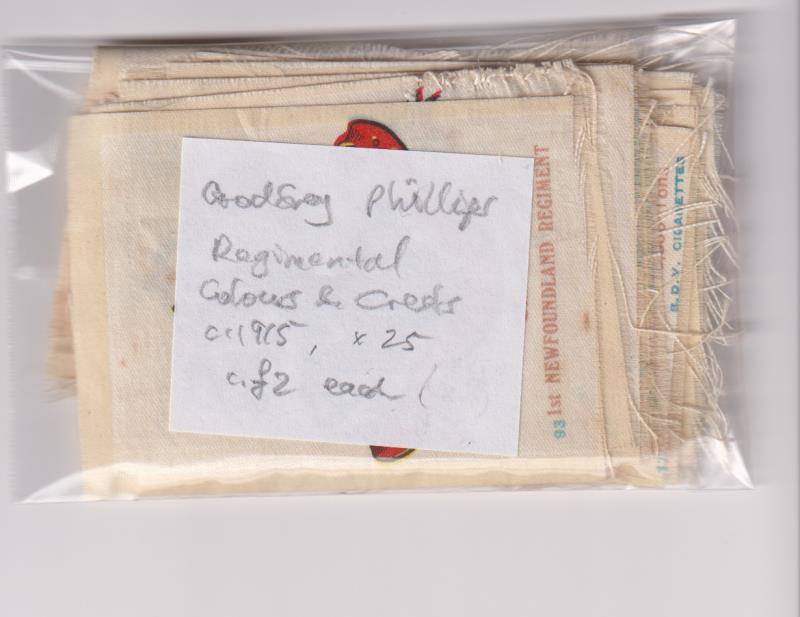 Godfrey Phillips
Regimental
Colours & Crests
c.1915, x 25
c.£2 each
93 1st NEWFOUNDLAND REGIMENT
B.D.V. CIGARETTES